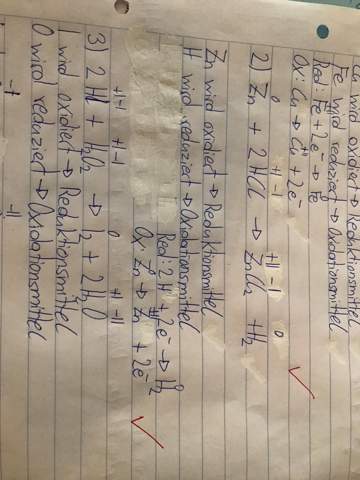 Cu wird oxidiert → Reduktionsmittel
Fe wird reduziert → Oxidationsmittel
Red: Fe + 2e⁻ → Fe
Ox: Cu → Cu + 2e⁻
0 +I -I +II -I 0
2) Zn + 2HCl → ZnCl₂ + H₂
Zn wird oxidiert → Reduktionsmittel
H wird reduziert → Oxidationsmittel
Red: 2H + 2e⁻ → H₂
Ox: Zn → Zn + 2e⁻
+I -I +I -I 0 +I -II
3) 2HI + H₂O₂ → I₂ + 2H₂O
I wird oxidiert → Reduktionsmittel
O wird reduziert → Oxidationsmittel
-I -II